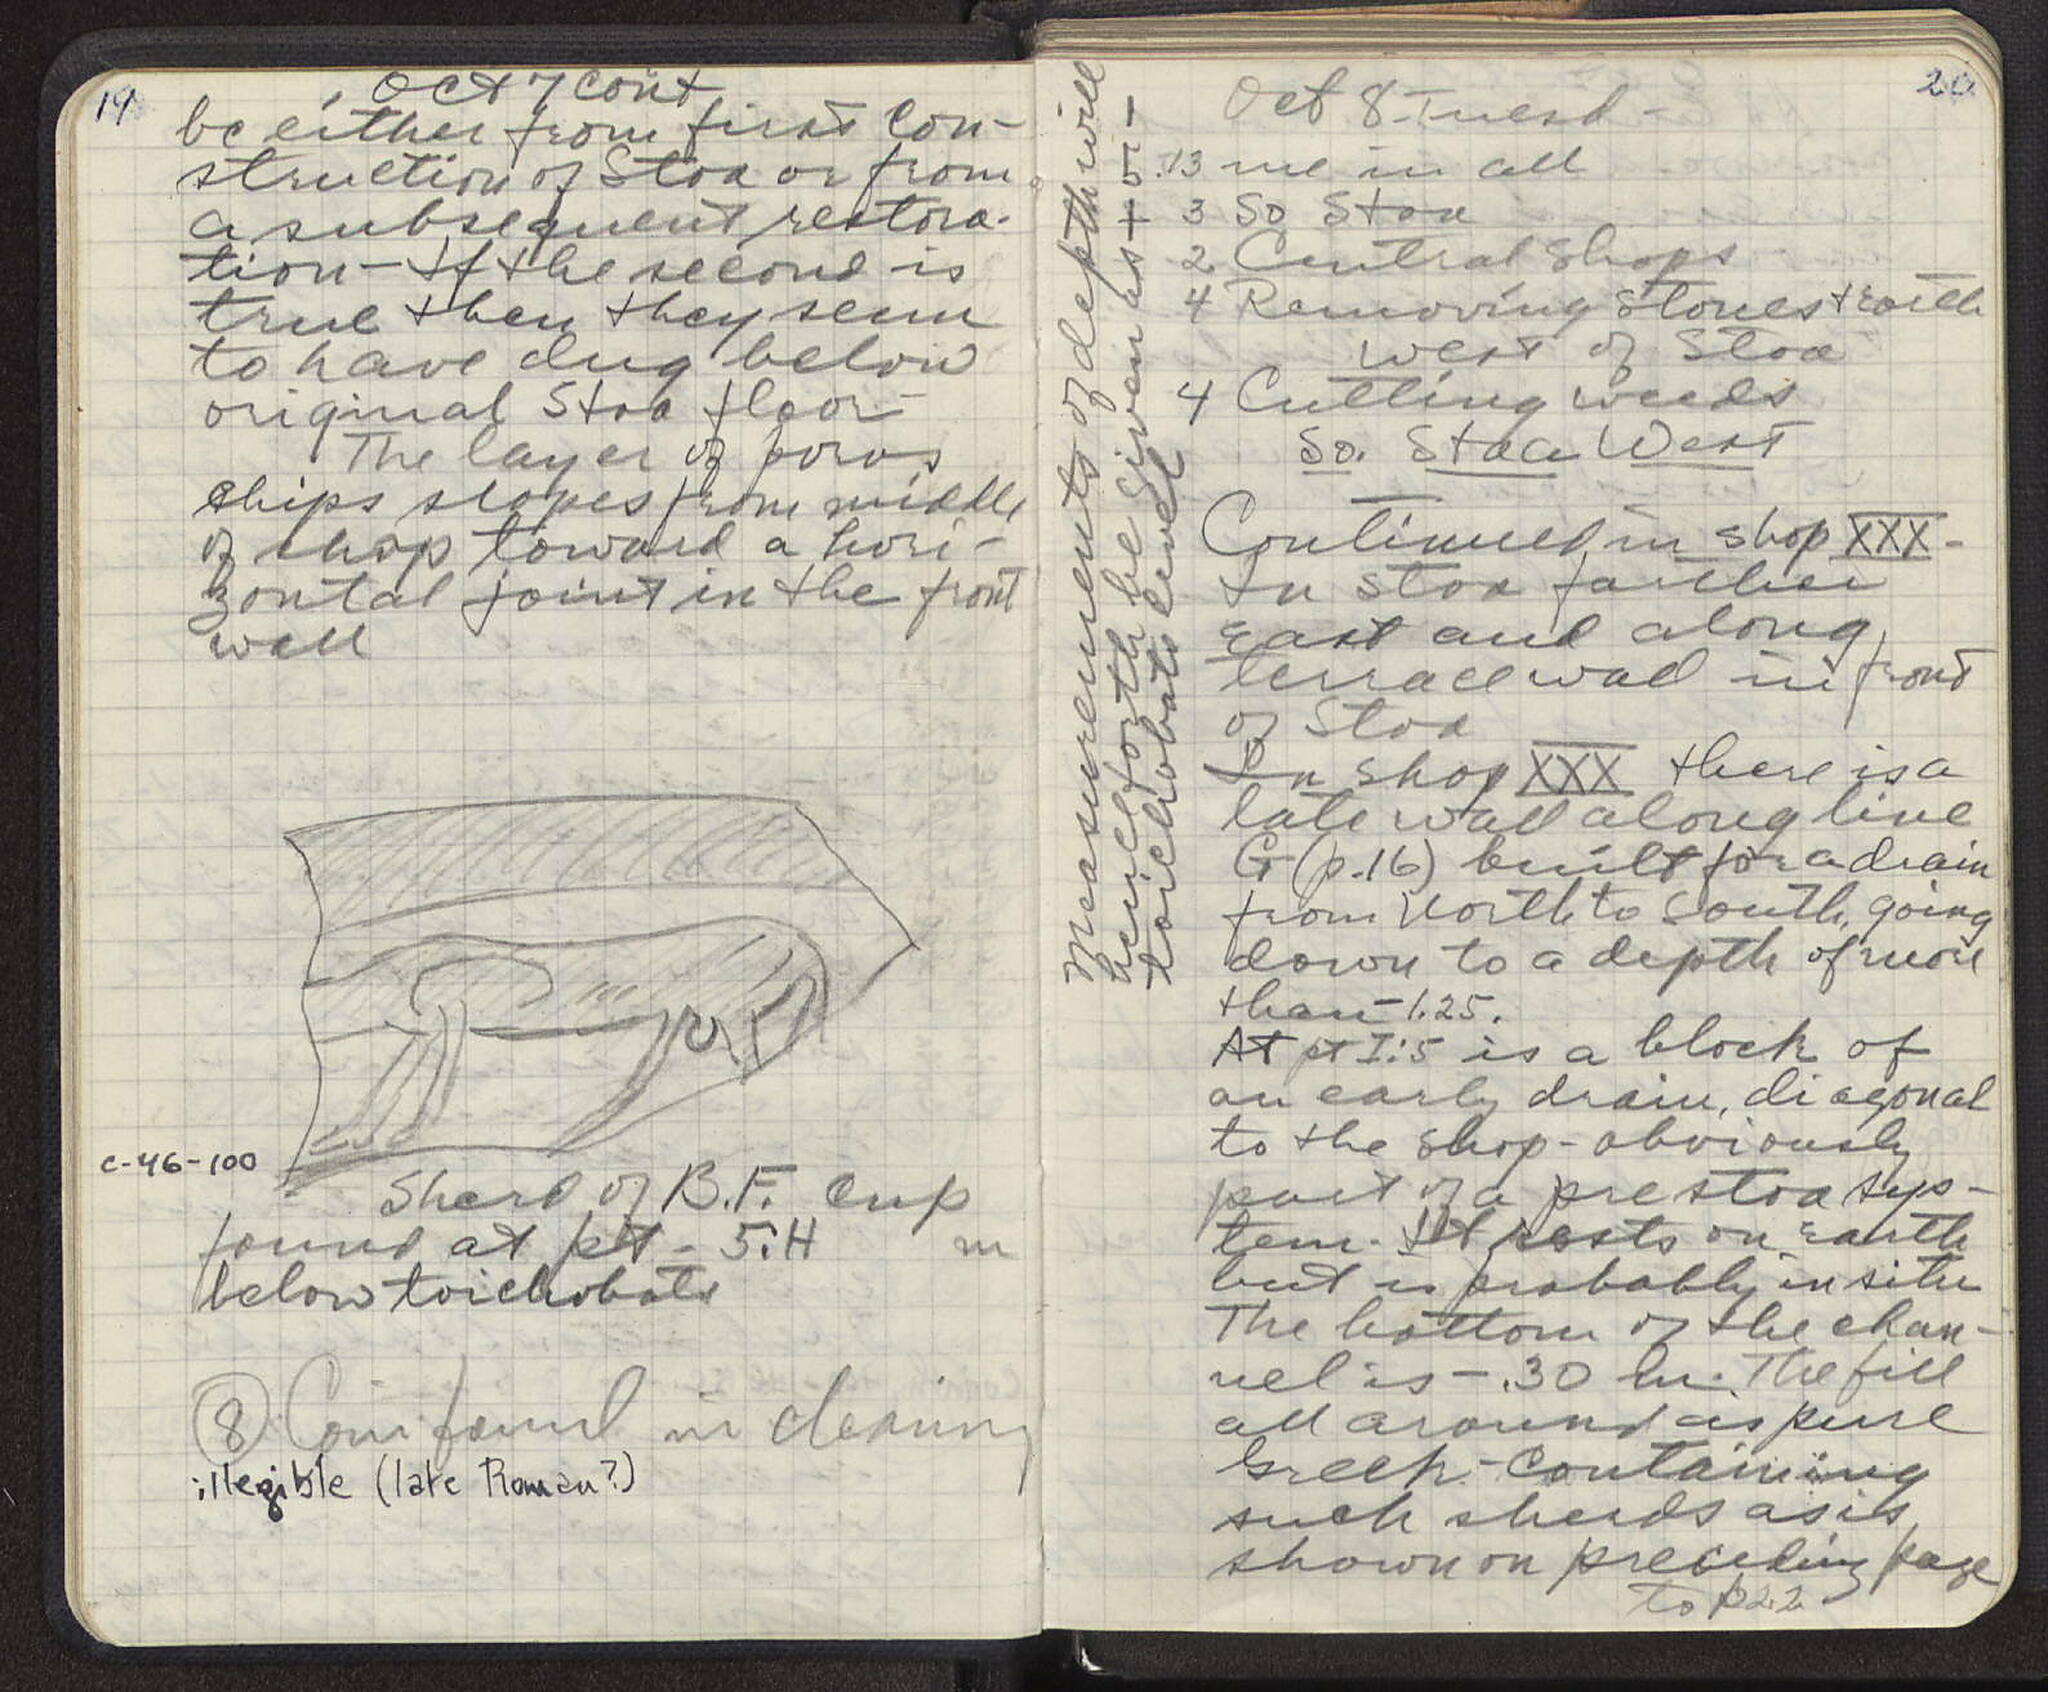 19
Oct 7 cont
be either from first con-
struction of Stoa or from
a subsequent restora-
tion - If the second is
true then they seem
to have dug below
original Stoa floor -
The layer of poros
chips slopes from middle
of shop toward a hori-
zontal joint in the front
wall
C-46-100
Sherd of B.F. cup
found at pt - 5:H m
below toichobate
8 Coin found in cleaning
illegible (late Roman?)
20
Measurements of depth will
henceforth be given as + 5 -
toichobate level
Oct 8 Tuesd -
13 me in all
3 So Stoa
2 Central Shops
4 Removing Stones + Earth
West of Stoa
4 Cutting weeds
So. Stoa West
Continued in shop XXX -
In Stoa farther
East and along
terrace wall in front
of Stoa
In shop XXX there is a
late wall along line
G (p.16) built for a drain
from North to South, going
down to a depth of more
than - 1.25.
At pt I:5 is a block of
an early drain, diagonal
to the shop - obviously
part of a pre stoa sys-
tem. It rests on Earth
but is probably in situ
The bottom of the chan-
nel is - .30 m. The fill
all around is pure
Greek - containing
such sherds as is
shown on preceding page
to p22